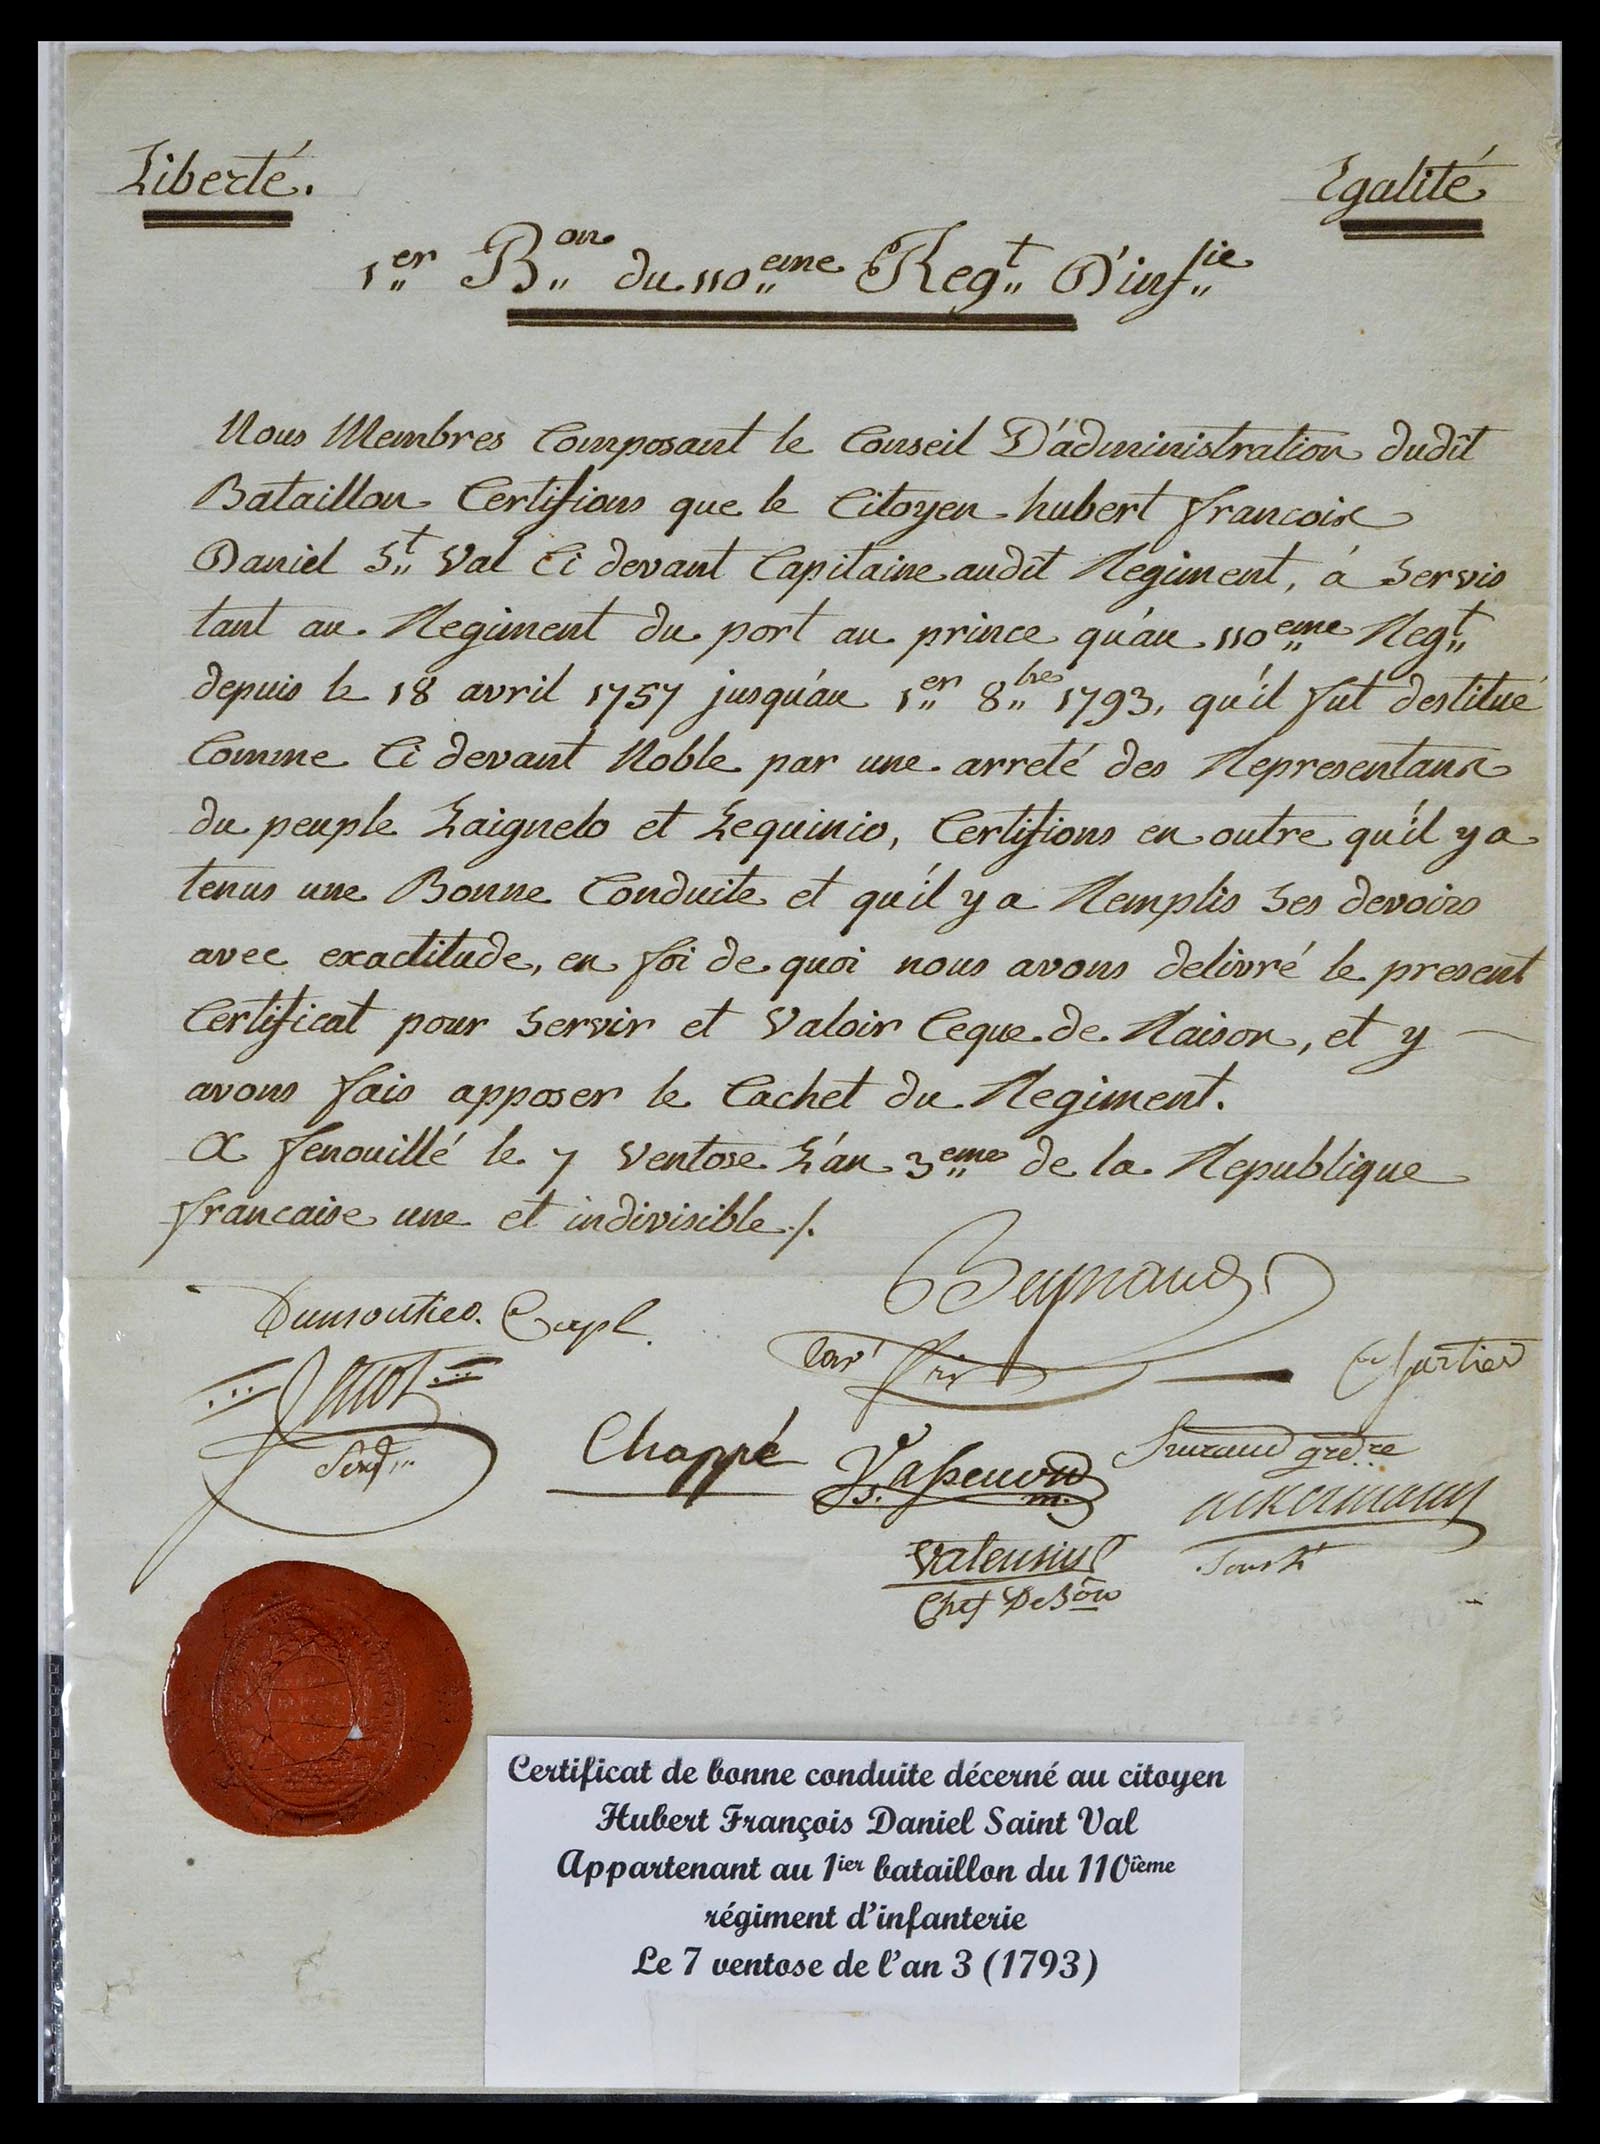 Liberté.
Egalité
1er Bon du 110eme Regt D'infie
Nous Membres Composant le Conseil D'administration dudit
Bataillon Certifions que le Citoyen hubert francois
Daniel St Val Ci devant Capitaine audit Regiment, à Servis
tant au Regiment du port au prince qu'au 110eme Regt
depuis le 18 avril 1757 jusqu'au 1er 8bre 1793, qu'il fut destitué
Comme Ci devant Noble par une arreté des Representans
du peuple Laignelo et Lequinio, Certifions en outre qu'il y a
tenus une Bonne Conduite et qu'il y a Remplis Ses devoirs
avec exactitude, en foi de quoi nous avons delivré le present
Certificat pour Servir et Valoir Ceque de Raison, et y
avons fais apposer le Cachet du Regiment.
A fenouillé le 7 Ventose L'an 3eme de la Republique
francaise une et indivisible./.
Dumoutier. Capt.
Chappé
ackermann
Chef De Bon
Certificat de bonne conduite décerné au citoyen
Hubert François Daniel Saint Val
Appartenant au 1ier bataillon du 110ième
régiment d'infanterie
Le 7 ventose de l'an 3 (1793)